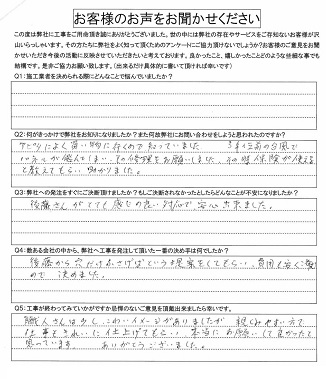 お客様のお声をお聞かせください
この度は弊社に工事をご用命頂き誠にありがとうございました。世の中には弊社の存在やサービスをご存知ないお客様が沢
山いらっしゃいます。その方たちに弊社をよく知って頂くためのアンケートにご協力頂けないでしょうか?お客様のご意見をお聞
かせいただき今後の活動に反映させていただきたいと考えております。良かったこと、嬉しかったことどのような些細な事でも
結構です。是非ご協力お願い致します。(出来るだけ具体的に書いて頂ければ幸いです)
Q1:施工業者を決められる際にどんなことで悩んでいましたか?
Q2:何がきっかけで弊社をお知りになりましたか?また何故弊社にお問い合わせをしようと思われたのですか?
買い物に行くので知っていました 台風で
その修理をお願いしました その時保険が使える
と教えてもらい助かりました。
Q3:弊社への発注をすぐにご決断頂けましたか?もしご決断されなかったとしたらどんなことが不安になりましたか?
後藤さんがとても感じの良い対応で安心出来ました。
Q4:数ある会社の中から、弊社へ工事を発注して頂いた一番の決め手は何でしたか?
後藤さんから という提案をしてもらい、費用も安く
ので決めました。
Q5:工事が終わってみていかがですか忌憚のないご意見を頂戴出来ましたら幸いです。
職人さんは少しこわいイメージがありましたが 親しみやすい方で
仕事もきれいに仕上げてもらい 本当にお願いして良かったと
思っています ありがとうございました。